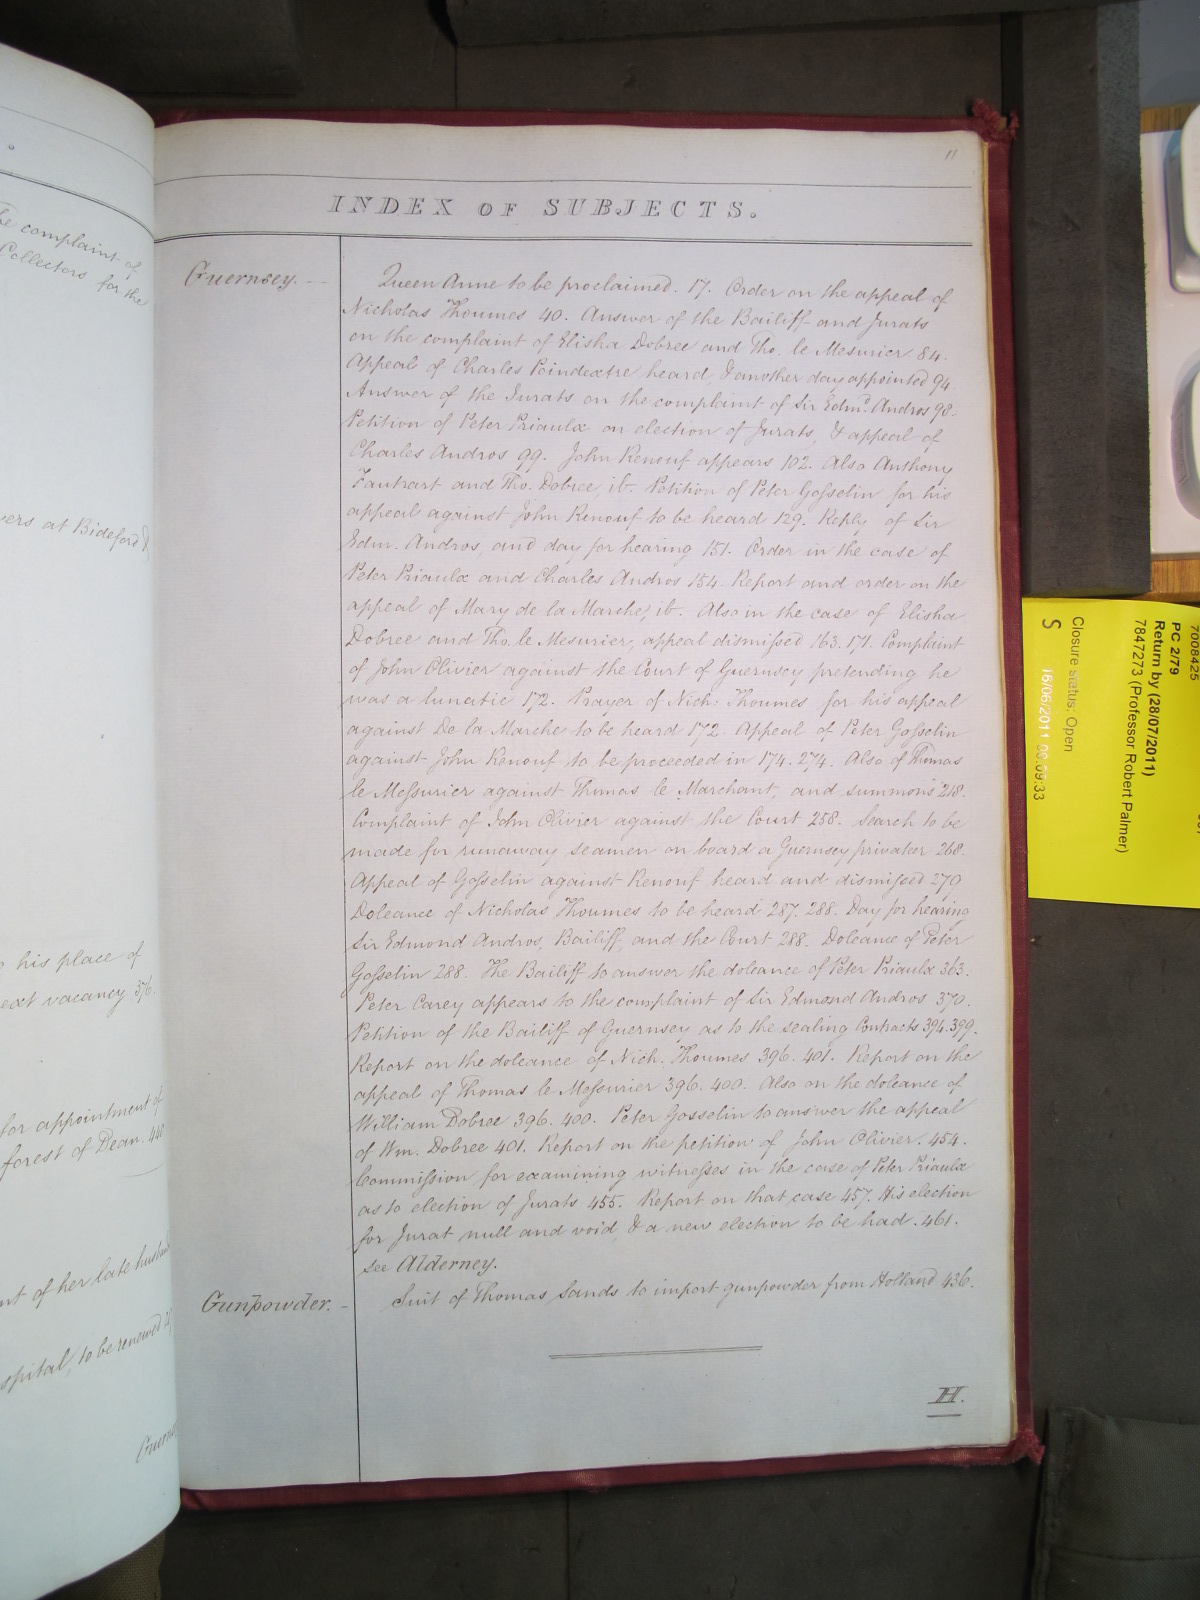 he complaint of
Collectors for the
vers at Bideford &
his place of
ext vacancy 376.
for appointment of
forest of Dean. 440
nt of her late husband
spital, to be renewed
Guerns
11
INDEX OF SUBJECTS.
Guernsey. —
Queen Anne to be proclaimed. 17. Order on the appeal of
Nicholas Thoumes 40. Answer of the Bailiff and Jurats
on the complaint of Elisha Dobree and Tho. le Mesurier 84.
Appeal of Charles Poindextre heard, & another day appointed 94.
Answer of the Jurats on the complaint of Sir Edmd. Andros 98.
Petition of Peter Priaulx on election of Jurats, & appeal of
Charles Andros 99. John Renouf appears 102. Also Anthony
Fautrart and Tho. Dobree, ib. Petition of Peter Gosselin for his
appeal against John Renouf to be heard 129. Reply of Sir
Edm. Andros, and day for hearing 151. Order in the case of
Peter Priaulx and Charles Andros 154. Report and order on the
appeal of Mary de la Marche, ib. Also in the case of Elisha
Dobree and Tho. le Mesurier, appeal dismissed 163. 171. Complaint
of John Olivier against the Court of Guernsey pretending he
was a lunatic 172. Prayer of Nich: Thoumes for his appeal
against De la Marche to be heard 172. Appeal of Peter Gosselin
against John Renouf to be proceeded in 174. 274. Also of Thomas
le Messurier against Thomas le Marchant, and summons 218.
Complaint of John Olivier against the Court 258. Search to be
made for runaway seamen on board a Guernsey privateer 268.
Appeal of Gosselin against Renouf heard and dismissed 279
Doleance of Nicholas Thoumes to be heard 287. 288. Day for hearing
Sir Edmond Andros, Bailiff, and the Court 288. Doleance of Peter
Gosselin 288. The Bailiff to answer the doleance of Peter Priaulx 363.
Peter Carey appears to the complaint of Sir Edmond Andros 370.
Petition of the Bailiff of Guernsey as to the sealing Contracts 394. 399.
Report on the doleance of Nich. Thoumes 396. 401. Report on the
appeal of Thomas le Messurier 396. 400. Also on the doleance of
William Dobree 396. 400. Peter Gosselin to answer the appeal
of Wm. Dobree 401. Report on the petition of John Olivier. 454.
Commission for examining witnesses in the case of Peter Priaulx
as to election of Jurats 455. Report on that case 457. His election
for Jurat null and void, & a new election to be had. 461.
see Alderney.
Gunpowder. -
Suit of Thomas Sands to import gunpowder from Holland 436.
H.
7008425
PC 2/79
Return by (28/07/2011)
7847273 (Professor Robert Palmer)
Closure status: Open
S
15/06/2011 09:39:33